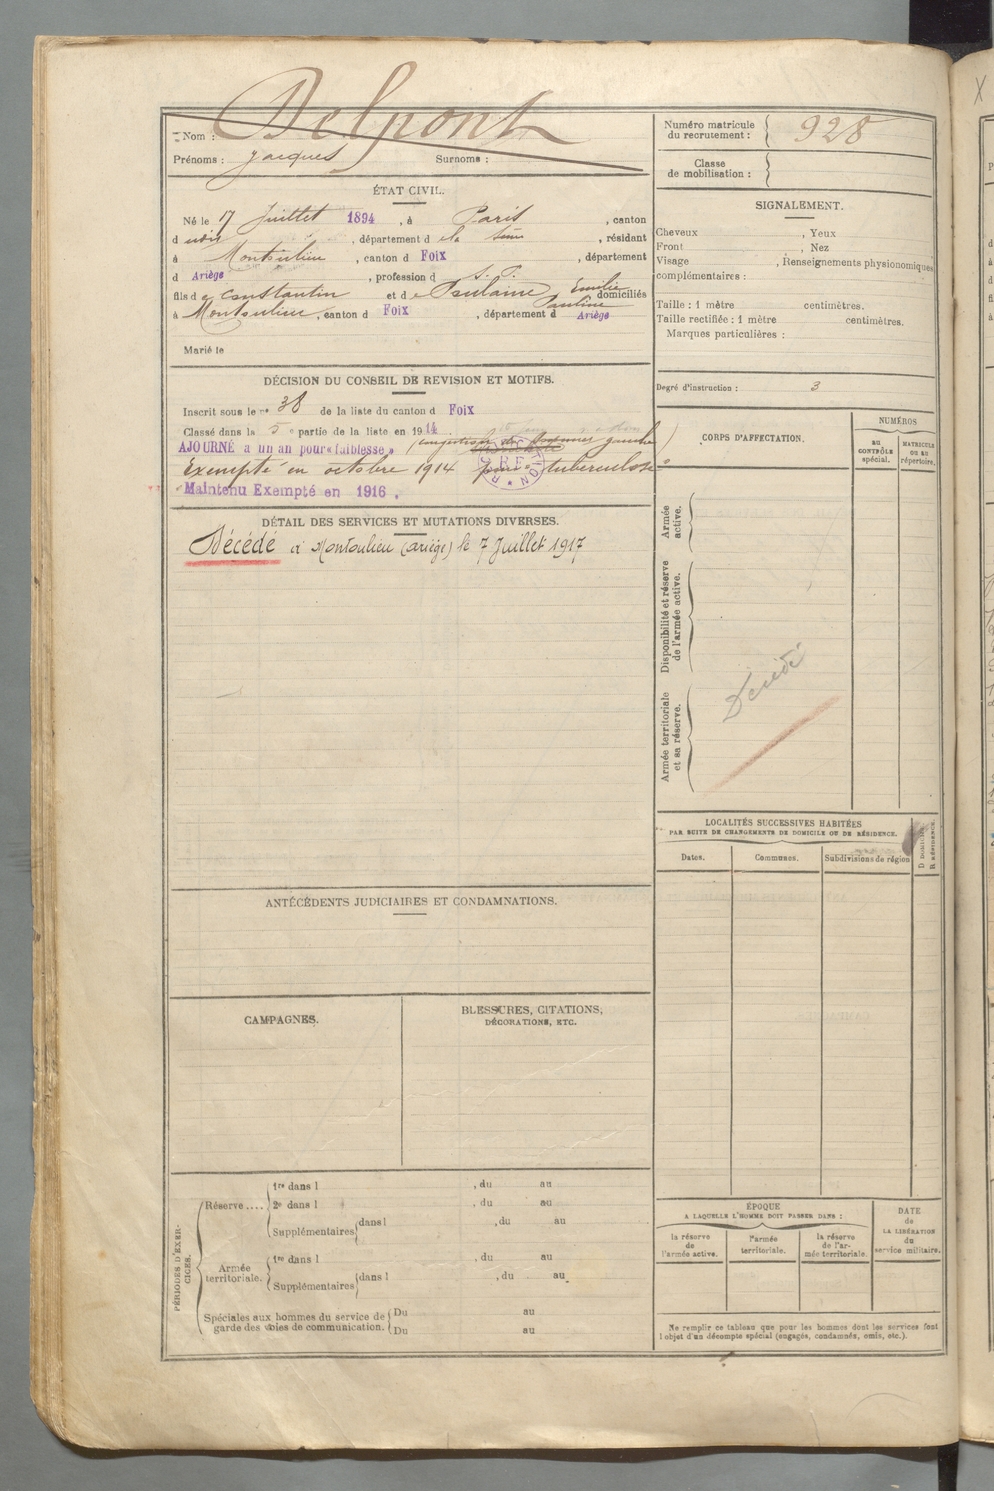 Nom : Delpont
Prénoms : Jacques Surnoms :
Numéro matricule du recrutement : 928
Classe de mobilisation :
ÉTAT CIVIL.
Né le 17 Juillet 1894 , à Paris , canton
d udit , département d e la Seine , résidant
à Montoulieu , canton d Foix , département
d Ariège , profession d s. P.
fils d e Constantin et d e Emilie Pauline domiciliés
à Montoulieu , canton d Foix , département d Ariège
Marié le
SIGNALEMENT.
Cheveux , Yeux
Front , Nez
Visage , Renseignements physionomiques
complémentaires :
Taille : 1 mètre centimètres.
Taille rectifiée : 1 mètre centimètres.
Marques particulières :
Degré d'instruction : 3
DÉCISION DU CONSEIL DE REVISION ET MOTIFS.
Inscrit sous le n° 38 de la liste du canton d Foix
Classé dans la 5 e partie de la liste en 1914
AJOURNÉ à un an pour « faiblesse » (congestion du poumon gauche)
Exempté en octobre 1914 pour « tuberculose »
Maintenu Exempté en 1916 .
DÉTAIL DES SERVICES ET MUTATIONS DIVERSES.
Décédé à Montoulieu (Ariège) le 7 Juillet 1917
CORPS D'AFFECTATION.
NUMÉROS
au CONTRÔLE spécial.
MATRICULE OU AU répertoire.
Armée active.
Disponibilité et réserve de l'armée active.
Armée territoriale et sa réserve.
Décédé
LOCALITÉS SUCCESSIVES HABITÉES
PAR SUITE DE CHANGEMENTS DE DOMICILE OU DE RÉSIDENCE.
Dates. Communes. Subdivisions de région
D. DOMICILE
R. RÉSIDENCE.
ANTÉCÉDENTS JUDICIAIRES ET CONDAMNATIONS.
CAMPAGNES.
BLESSURES, CITATIONS,
DÉCORATIONS, ETC.
PÉRIODES D'EXERCICES.
Réserve....
1re dans l , du au
2e dans l , du au
Supplémentaires dans l , du au
Armée territoriale.
1re dans l , du au
Supplémentaires dans l , du au
Spéciales aux hommes du service de garde des voies de communication.
Du au
Du au
ÉPOQUE
A LAQUELLE L'HOMME DOIT PASSER DANS :
la réserve de l'armée active.
l'armée territoriale.
la réserve de l'armée territoriale.
DATE de LA LIBÉRATION du service militaire.
Ne remplir ce tableau que pour les hommes dont les services font
l'objet d'un décompte spécial (engagés, condamnés, omis, etc.).